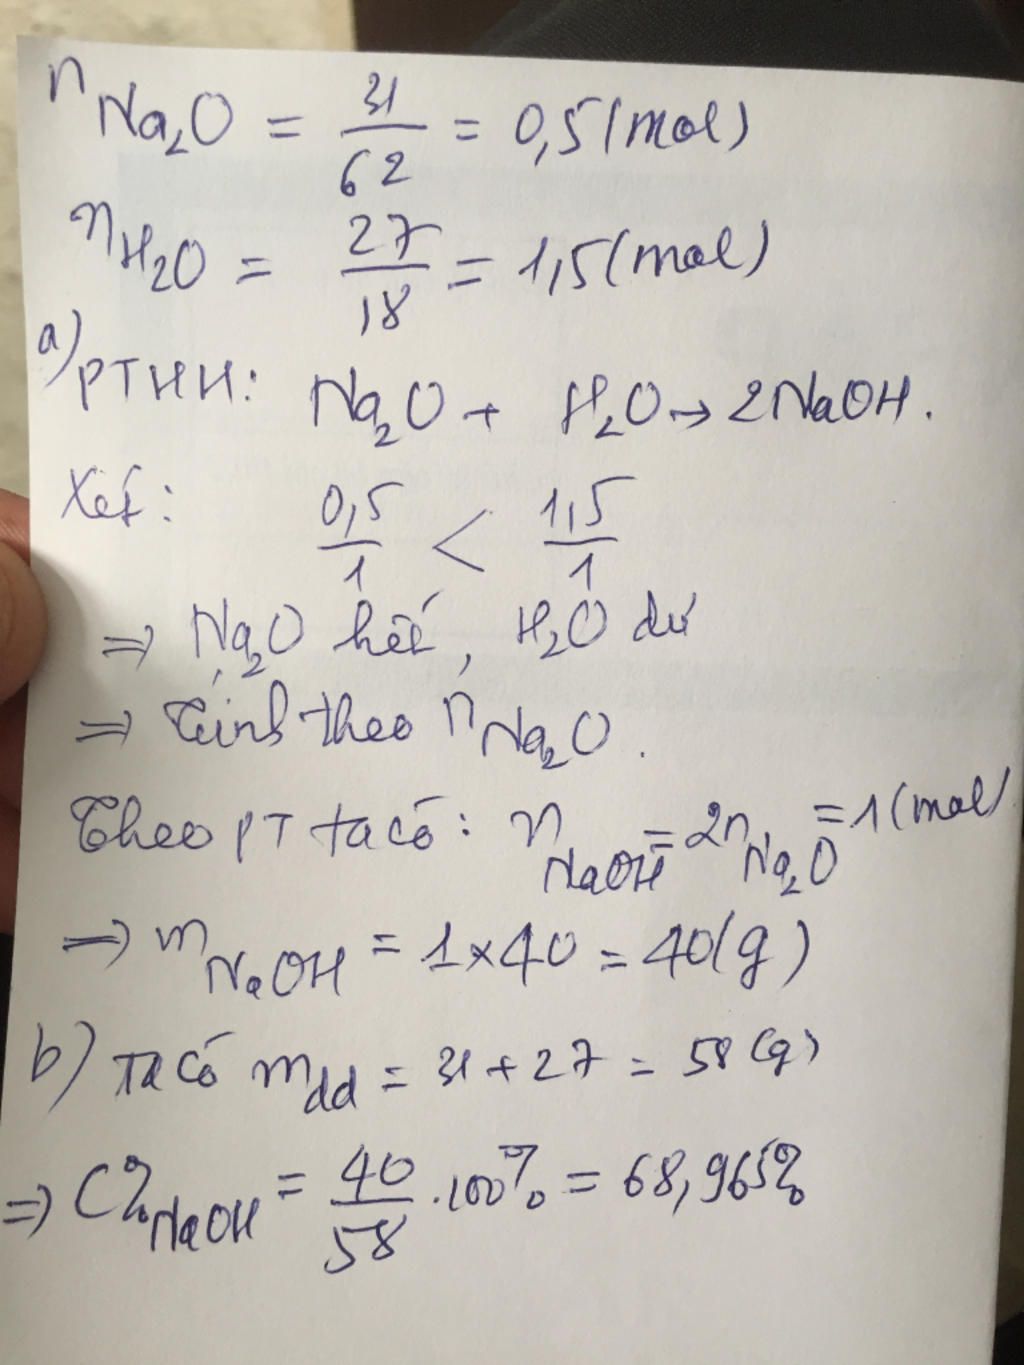 nNa₂O = 31/62 = 0,5(mol)
nH2O = 27/18 = 1,5(mol)
a) PTHH: Na₂O + H₂O → 2NaOH.
Xét: 0,5/1 < 1,5/1
⇒ Na₂O hết, H₂O dư
⇒ Tính theo nNa₂O.
Theo PT ta có: nNaOH = 2nNa₂O = 1(mol)
⇒ mNaOH = 1×40 = 40(g)
b) Ta có mdd = 31 + 27 = 58(g)
⇒ C%NaOH = 40/58 .100% = 68,965%